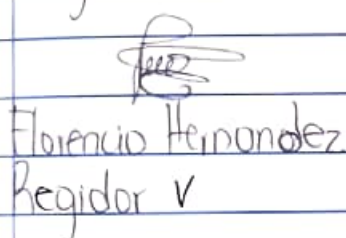 Florencio Hernandez
Regidor V